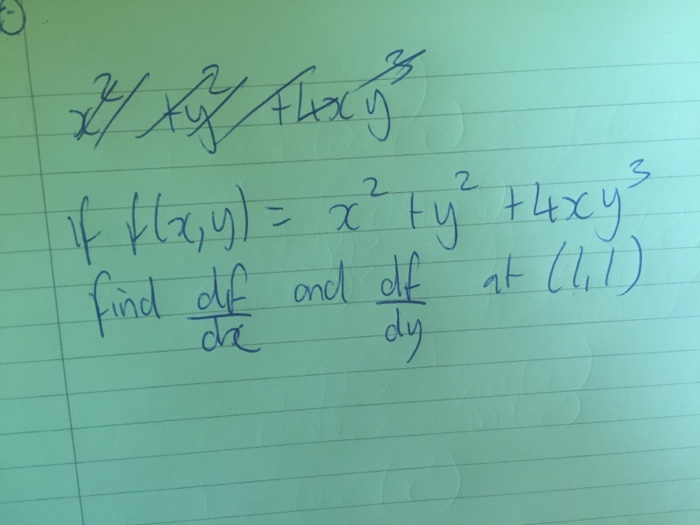 x² + y² + 4xy³
If f(x,y) = x² + y² + 4xy³
find df/dx and df/dy at (1,1)